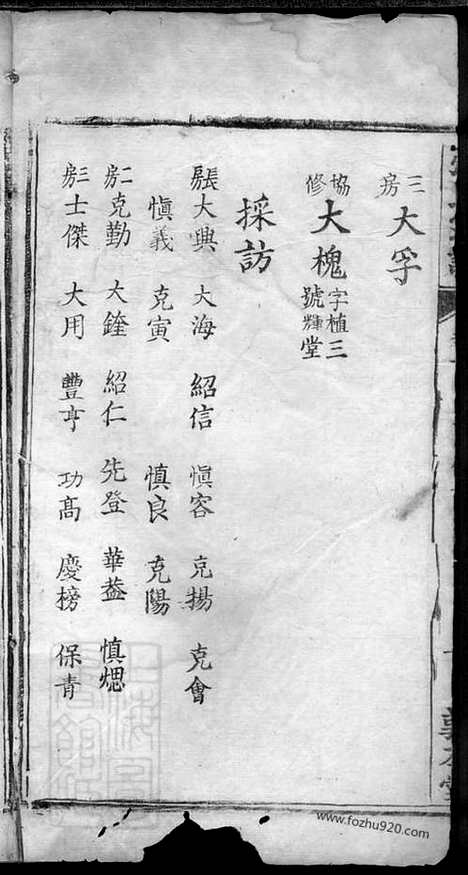 三房 大孚
協修 大槐 字植三 號輝堂
採訪
長房 大興 大海 紹信 愼容 克揚 克會
愼義 克寅 慎良 克陽
二房 克勤 大鋒 紹仁 先登 華益 慎煾
三房 士傑 大用 豐亨 功高 慶榜 保青
www.fozhu920.com